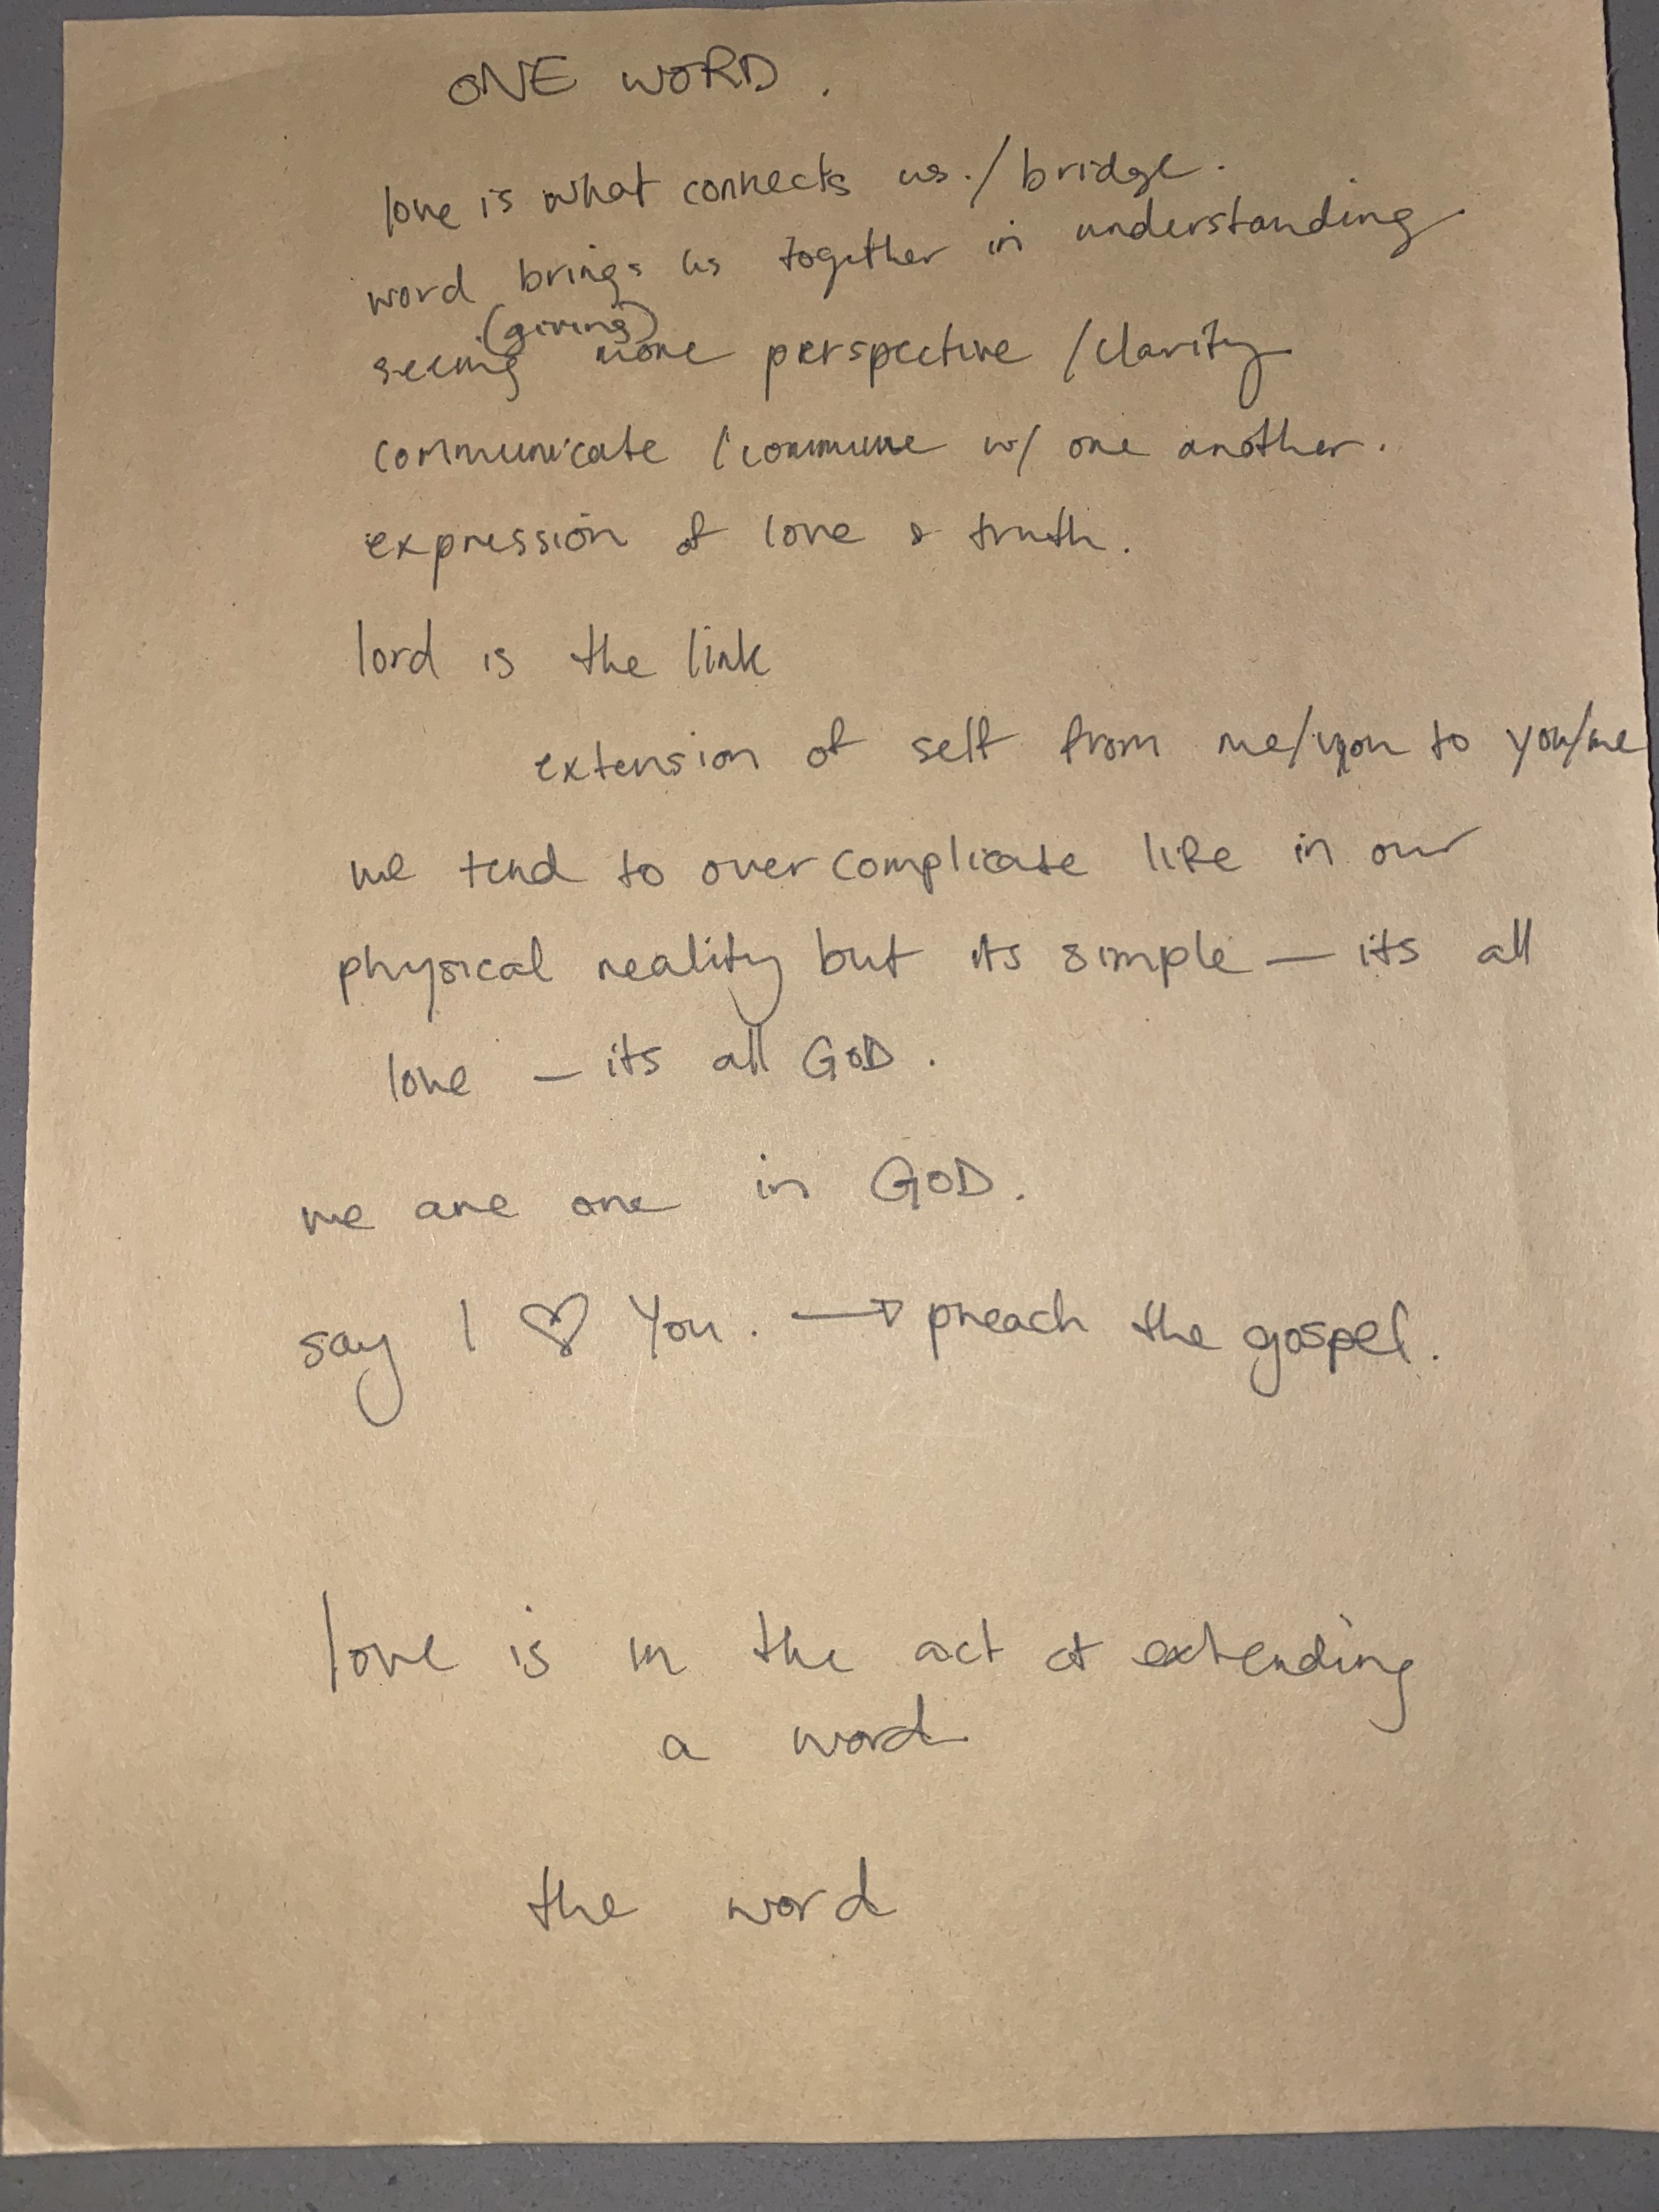 ONE WORD.
love is what connects us./bridge.
word brings us together in understanding
(giving)
seeing more perspective /clarity
communicate /commune w/ one another.
expression of love & truth.
lord is the link
extension of self from me/you to you/me
we tend to overcomplicate life in our
physical reality but its simple – its all
love – its all GOD.
we are one in GOD.
say I ♡ You. → preach the gospel.
love is in the act of extending
a word
the word